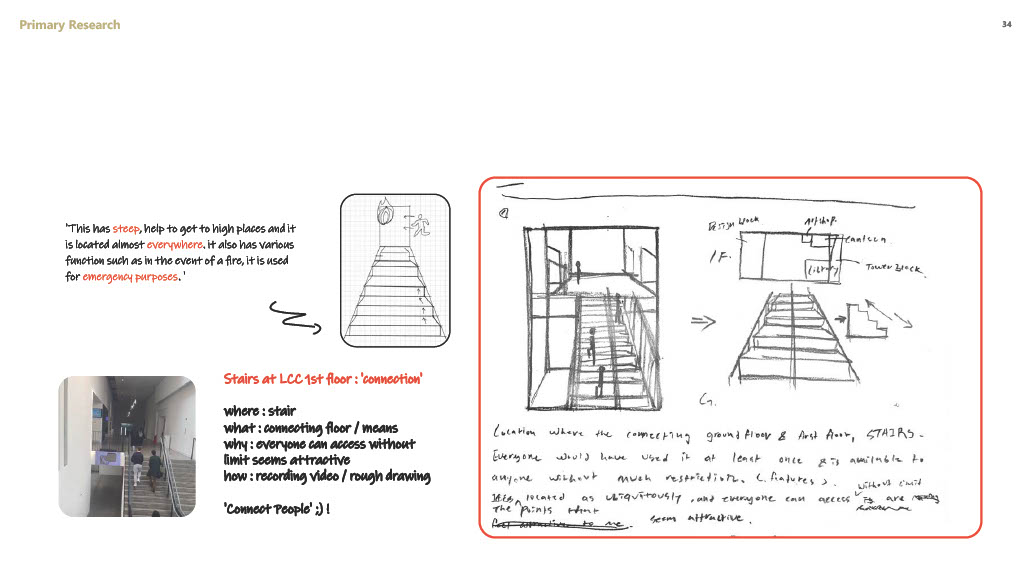 Primary Research
34
'This has steep, help to get to high places and it
is located almost everywhere. it also has various
function such as in the event of a fire, it is used
for emergency purposes. '
Stairs at LCC 1st floor : 'connection'
where : stair
what : connecting floor / means
why : everyone can access without
limit seems attractive
how : recording video / rough drawing
'Connect People' ;) !
Design block
Art shop.
canteen
1F.
Library
Tower Block.
G.
Location where the connecting ground floor & first floor, STAIRS.
Everyone would have used it at least once & is available to
anyone without much restriction. (features).
without limit
located as ubiquitously, and everyone can access are
The points that
seem attractive.